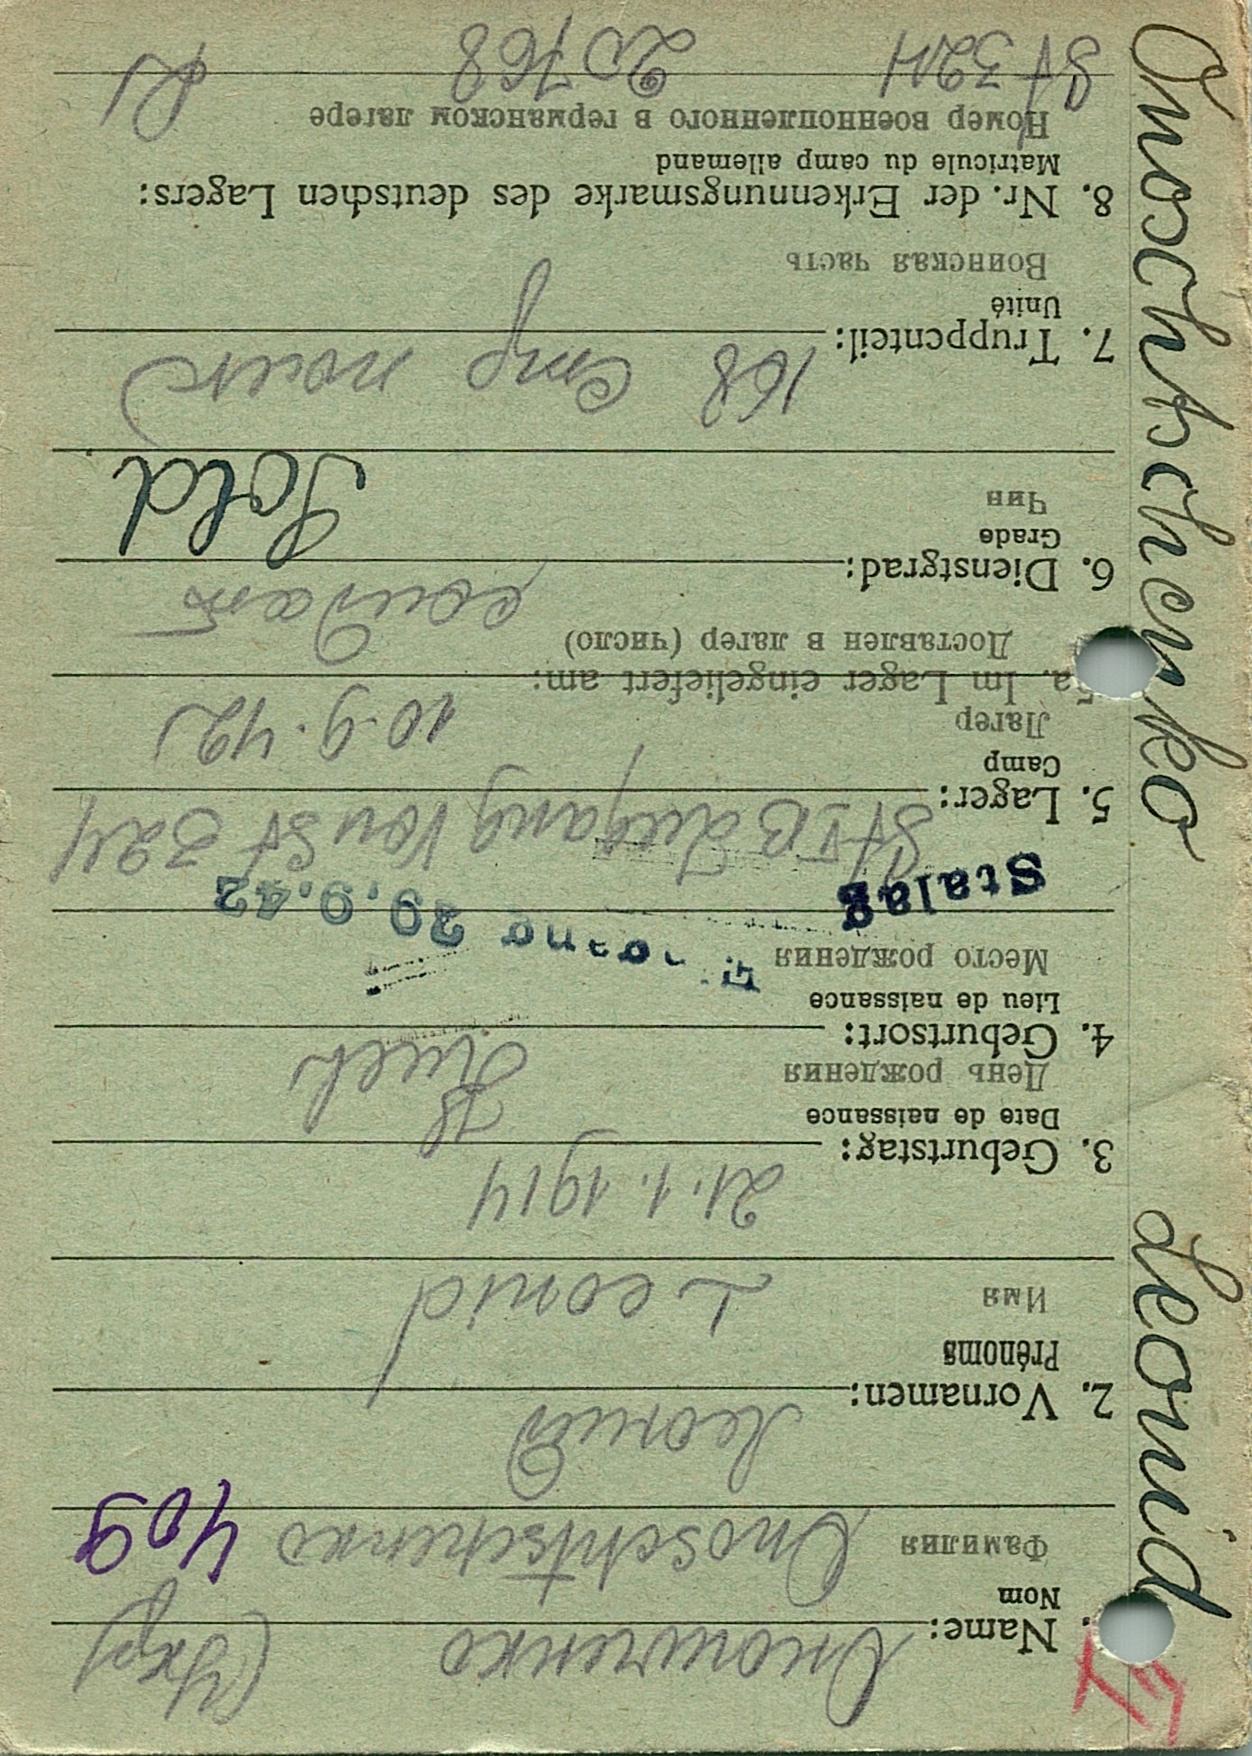 Onoschtschenko Leonid
1. Name: Оношченко (Укр)
Nom
Фамилия Onoschtschenko 409
2. Vornamen: Леонид
Prénoms
Имя Leonid
3. Geburtstag: 21.1.1914
Date de naissance
День рождения
4. Geburtsort: Kiew
Lieu de naissance
Место рождения
29.9.42
Stalag
5. Lager: St VB Zugang von St 324
Camp
Лагер
5a. Im Lager eingeliefert am: 10.9.42
Доставлен в лагер (число)
6. Dienstgrad: солдат
Grade
Чин Sold
7. Truppenteil: 168 стр полк
Unité
Воинская часть
8. Nr. der Erkennungsmarke des deutschen Lagers:
Matricule du camp allemand
Номер военнопленного в германском лагере
St 324 20768